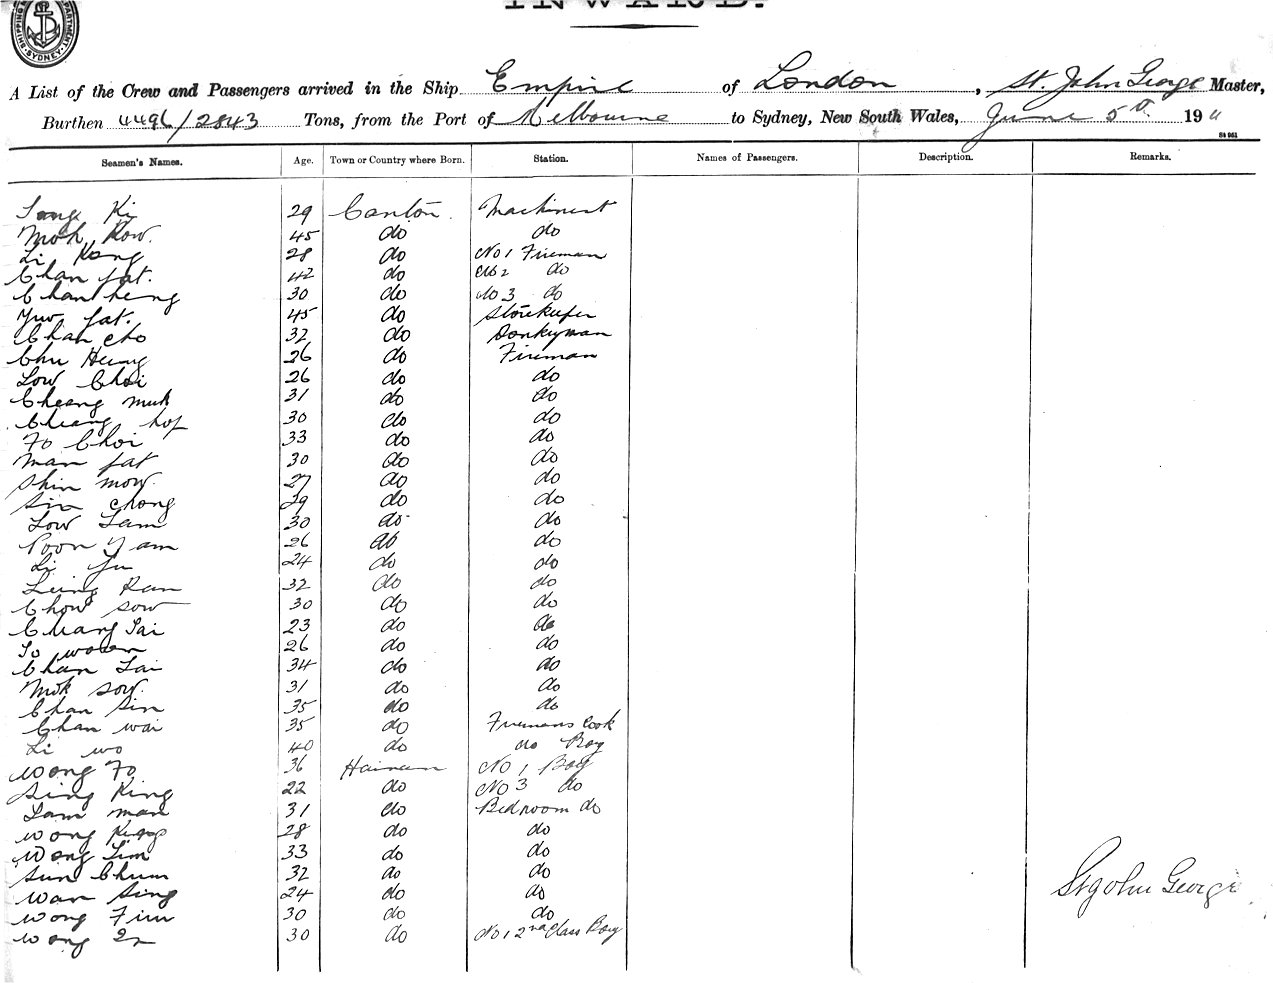 INWARD.
SYDNEY
A List of the Crew and Passengers arrived in the Ship Empire of London, St. John George Master,
Burthen 4496/2843 Tons, from the Port of Melbourne to Sydney, New South Wales, June 5th 19
Seamen's Names. Age. Town or Country where Born. Station. Names of Passengers. Description. Remarks.
Ki 29 Canton. Machinist
Mok Kow. 45 do do
Li Kong 28 do No 1 Fireman
Chan fat. 42 do No 2 do
Chan heng 30 do No 3 do
Yuw fat. 45 do Storekeeper
Chan cho 32 do Donkeyman
Chu Heung 26 do Fireman
Low Choi 26 do do
Cheang muk 31 do do
Cheang hop 30 do do
Fo Choi 33 do do
man fat 30 do do
Shin mow. 27 do do
Sin chong 29 do do
Low Lam 30 do do
Poon Yam 26 do do
Li Yu 24 do do
Leung Kan 32 do do
Chow sow 30 do do
Chang Tai 23 do do
To 26 do do
Chan Tai 34 do do
Mok sow. 31 do do
Chan Sin 35 do do
Chan wai 35 do Firemans Cook
Li wo 40 do do Boy
Wong Fo 36 Hainan No 1 Boy
Sing King 22 do No 3 do
Lam man 31 do Bedroom do
Wong 28 do do
Wong Lim 33 do do
Sun Chum 32 do do
Wan Sing 24 do do
Wong 30 do do
Wong 30 do No 1 2nd Class Boy
St John George